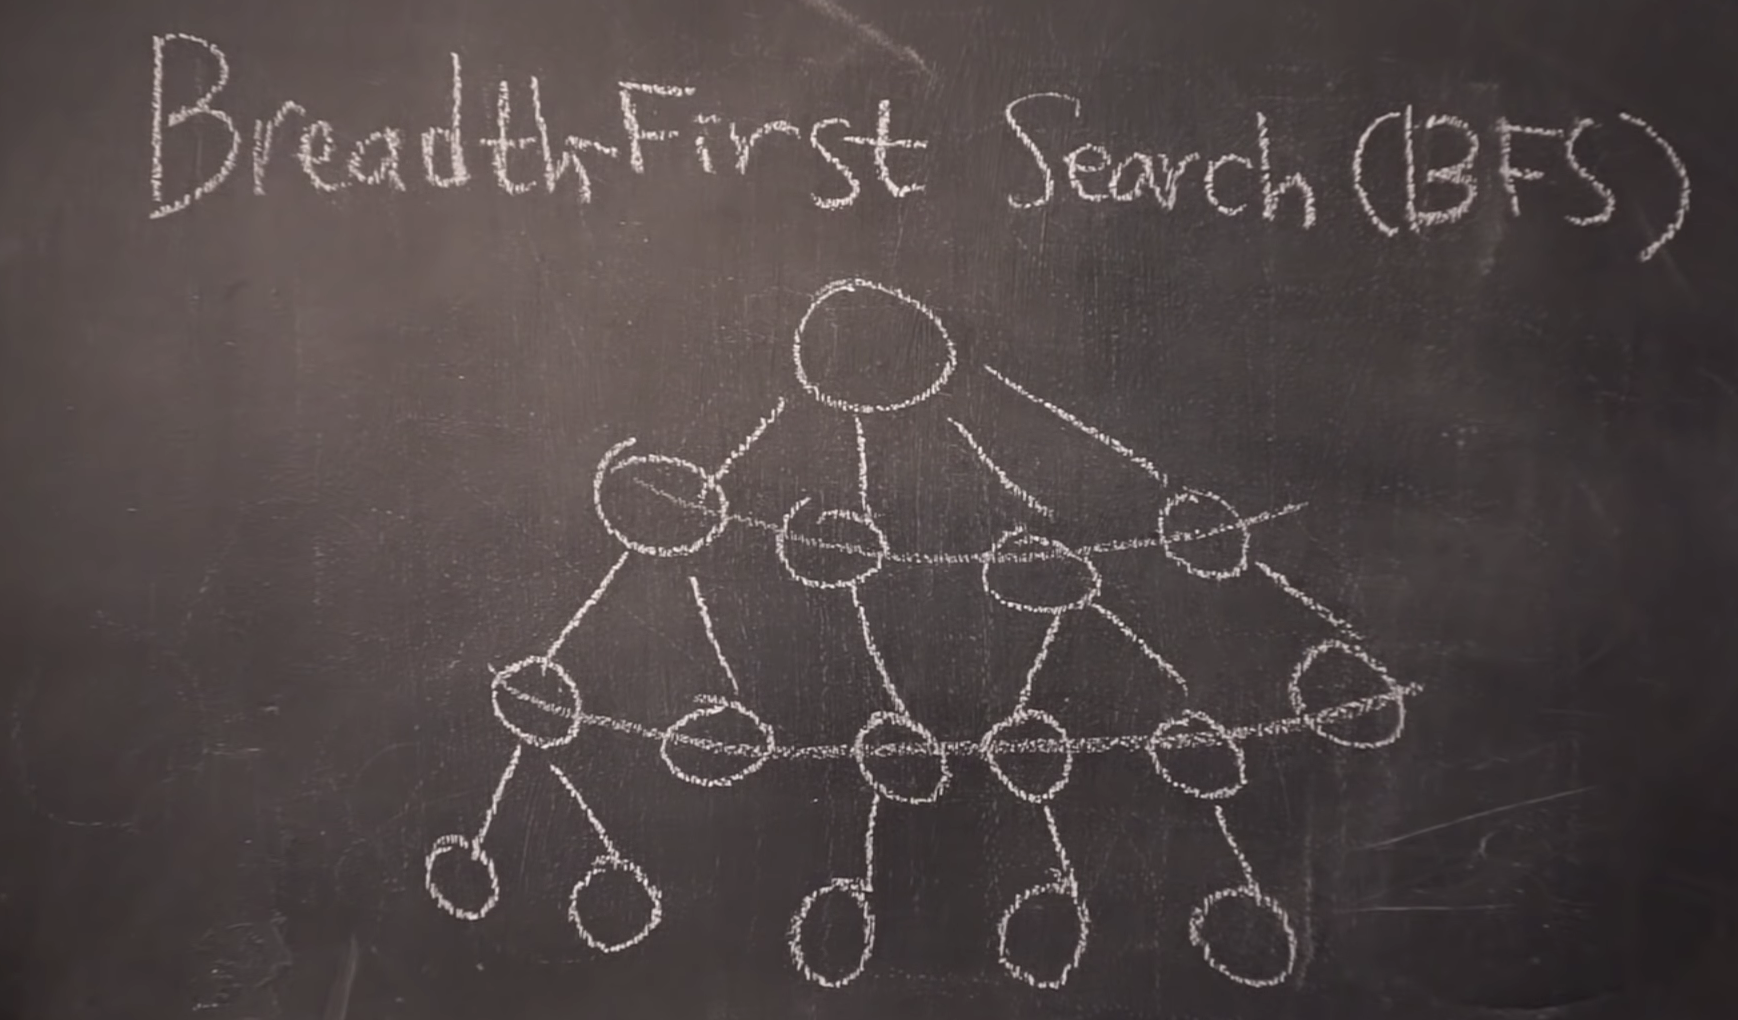 Breadth-First Search (BFS)